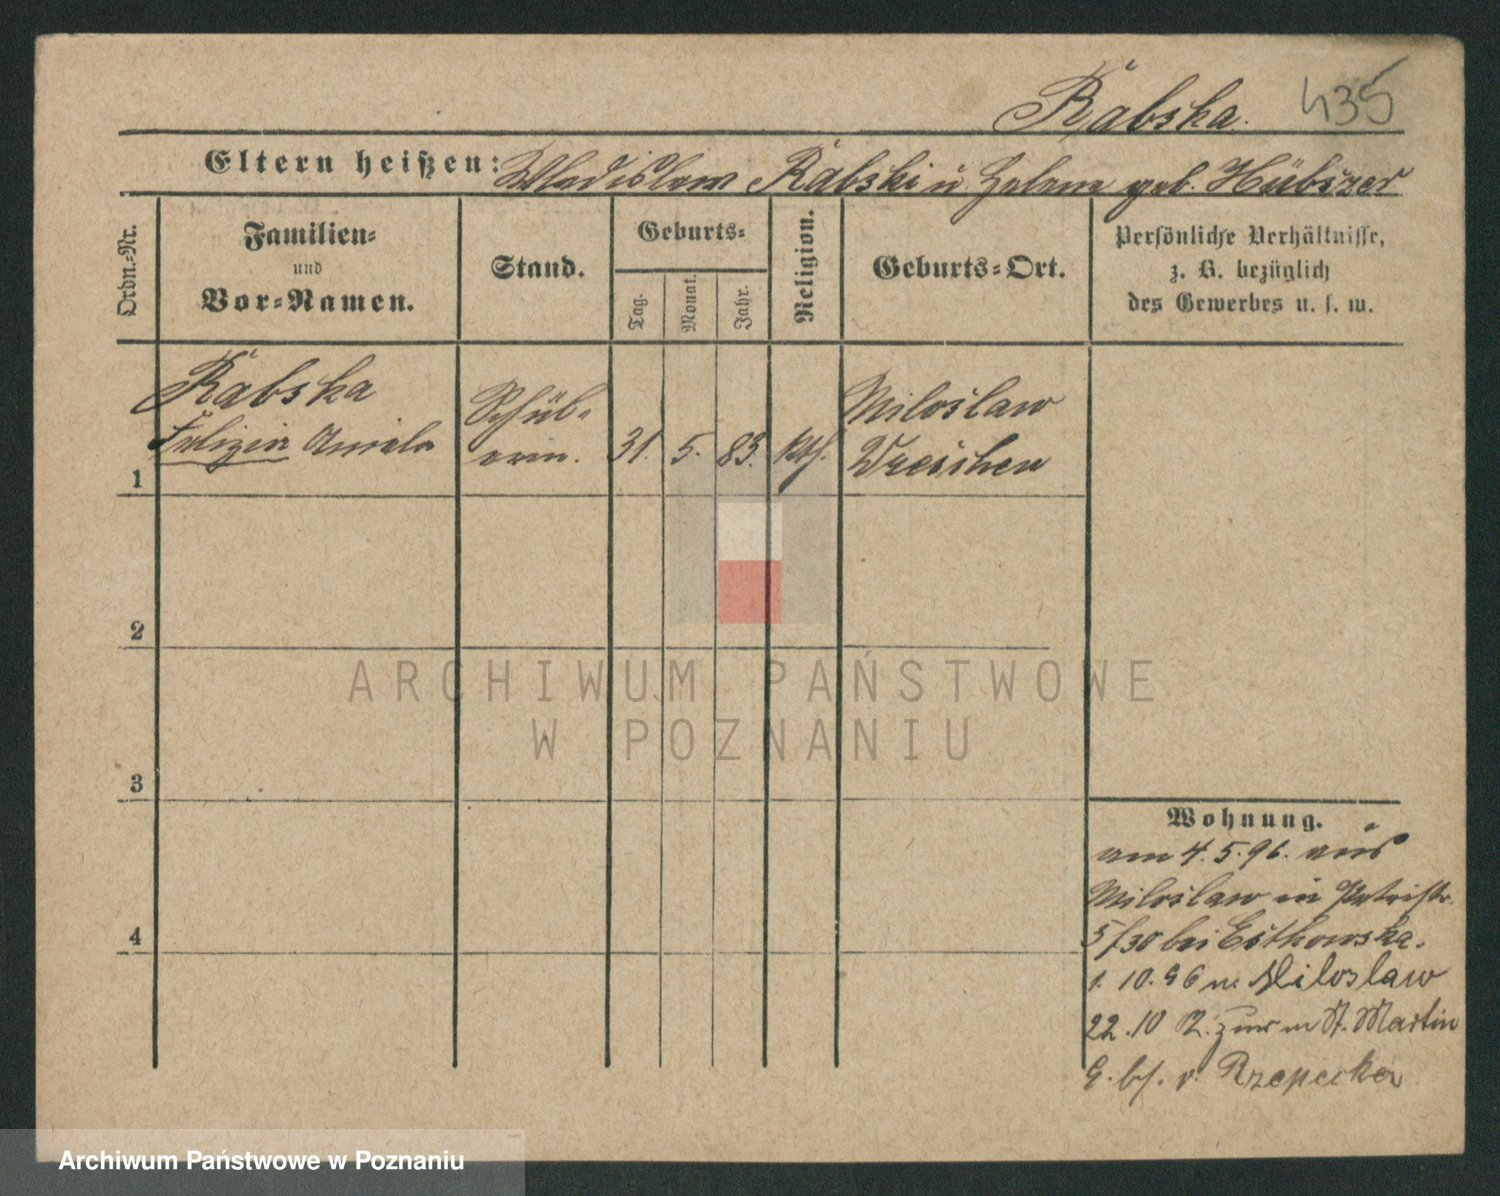 Rabska. 435
Eltern heißen: Wladislaw Rabski u Helene geb. Hübszer
Ordn.-Nr.
Familien-
und
Vor-Namen.
Stand.
Geburts-
Tag.
Monat.
Jahr.
Religion.
Geburts-Ort.
Persönliche Verhältnisse,
z. B. bezüglich
des Gewerbes u. s. w.
Rabska
Felizia Aniela
Schül-
erin.
31. 5. 83. kth.
Miloslaw
Wreschen
1
2
3
4
Wohnung.
am 4.5.96. aus
Miloslaw in Petristr.
5/30 bei Estkowska.
1. 10. 96 n. Miloslaw
22.10 Z. zur in St. Martin
6. bf. v. Rzepecka
ARCHIWUM PAŃSTWOWE
W POZNANIU
Archiwum Państwowe w Poznaniu